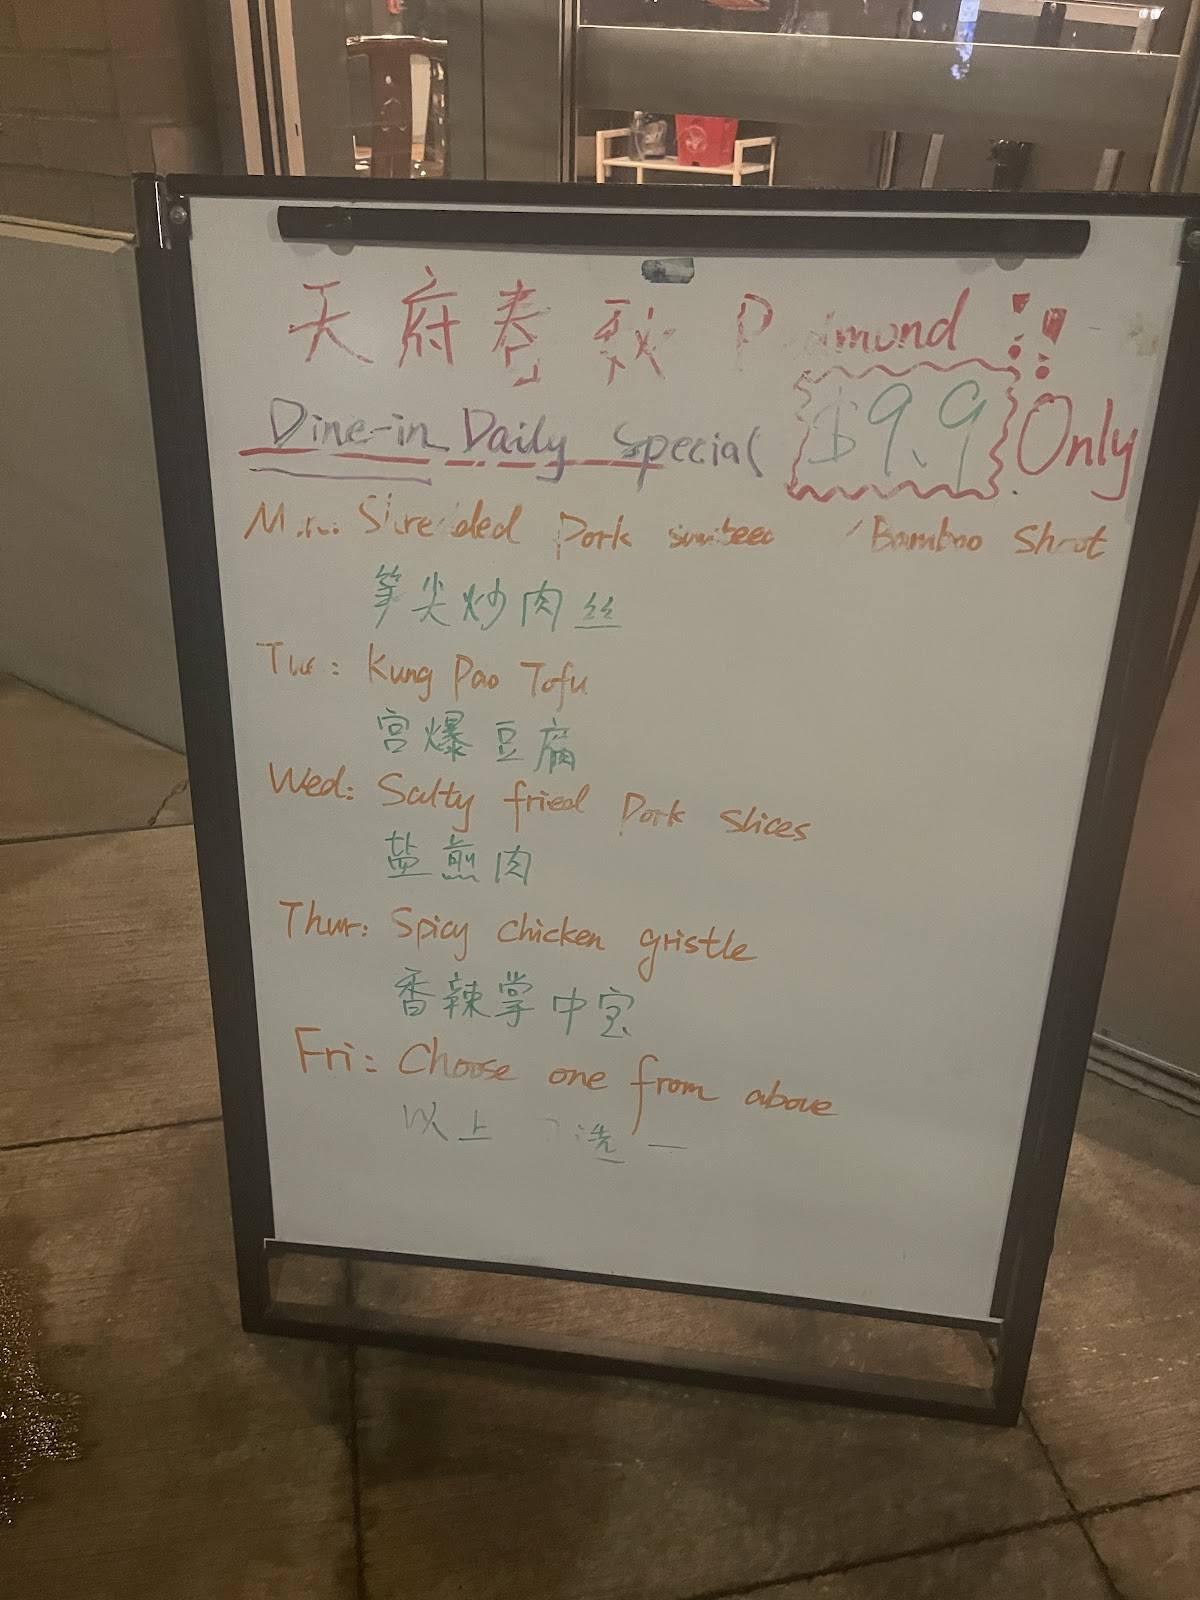 天府春秋 Redmond !!
Dine-in Daily Special $9.9 Only
Shredded Pork Bamboo Shoot
笋尖炒肉丝
Tue: Kung Pao Tofu
宫爆豆腐
Wed: Salty fried Pork slices
盐煎肉
Thur: Spicy chicken gristle
香辣掌中宝
Fri: Choose one from above
以上 选一